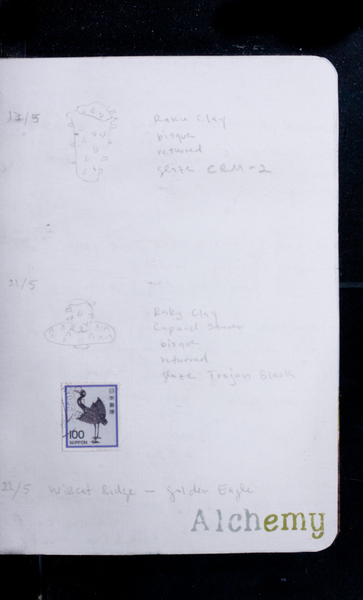 13/5 Raku Clay
bisque
returned
glaze CRM-2
21/5
Raku Clay
bisque
returned
glaze Trojan Black
日本郵便
100
NIPPON
22/5 Wildcat Ridge — golden Eagle
Alchemy